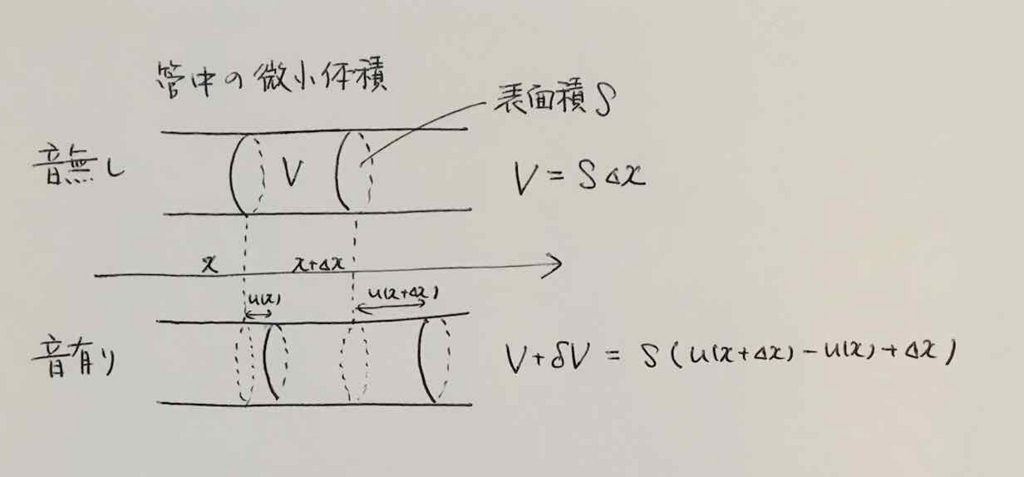 管中の微小体積
表面積S
音無し
V
V = SΔx
x
x+Δx
u(x)
u(x+Δx)
音有り
V+δV = S(u(x+Δx)-u(x)+Δx)